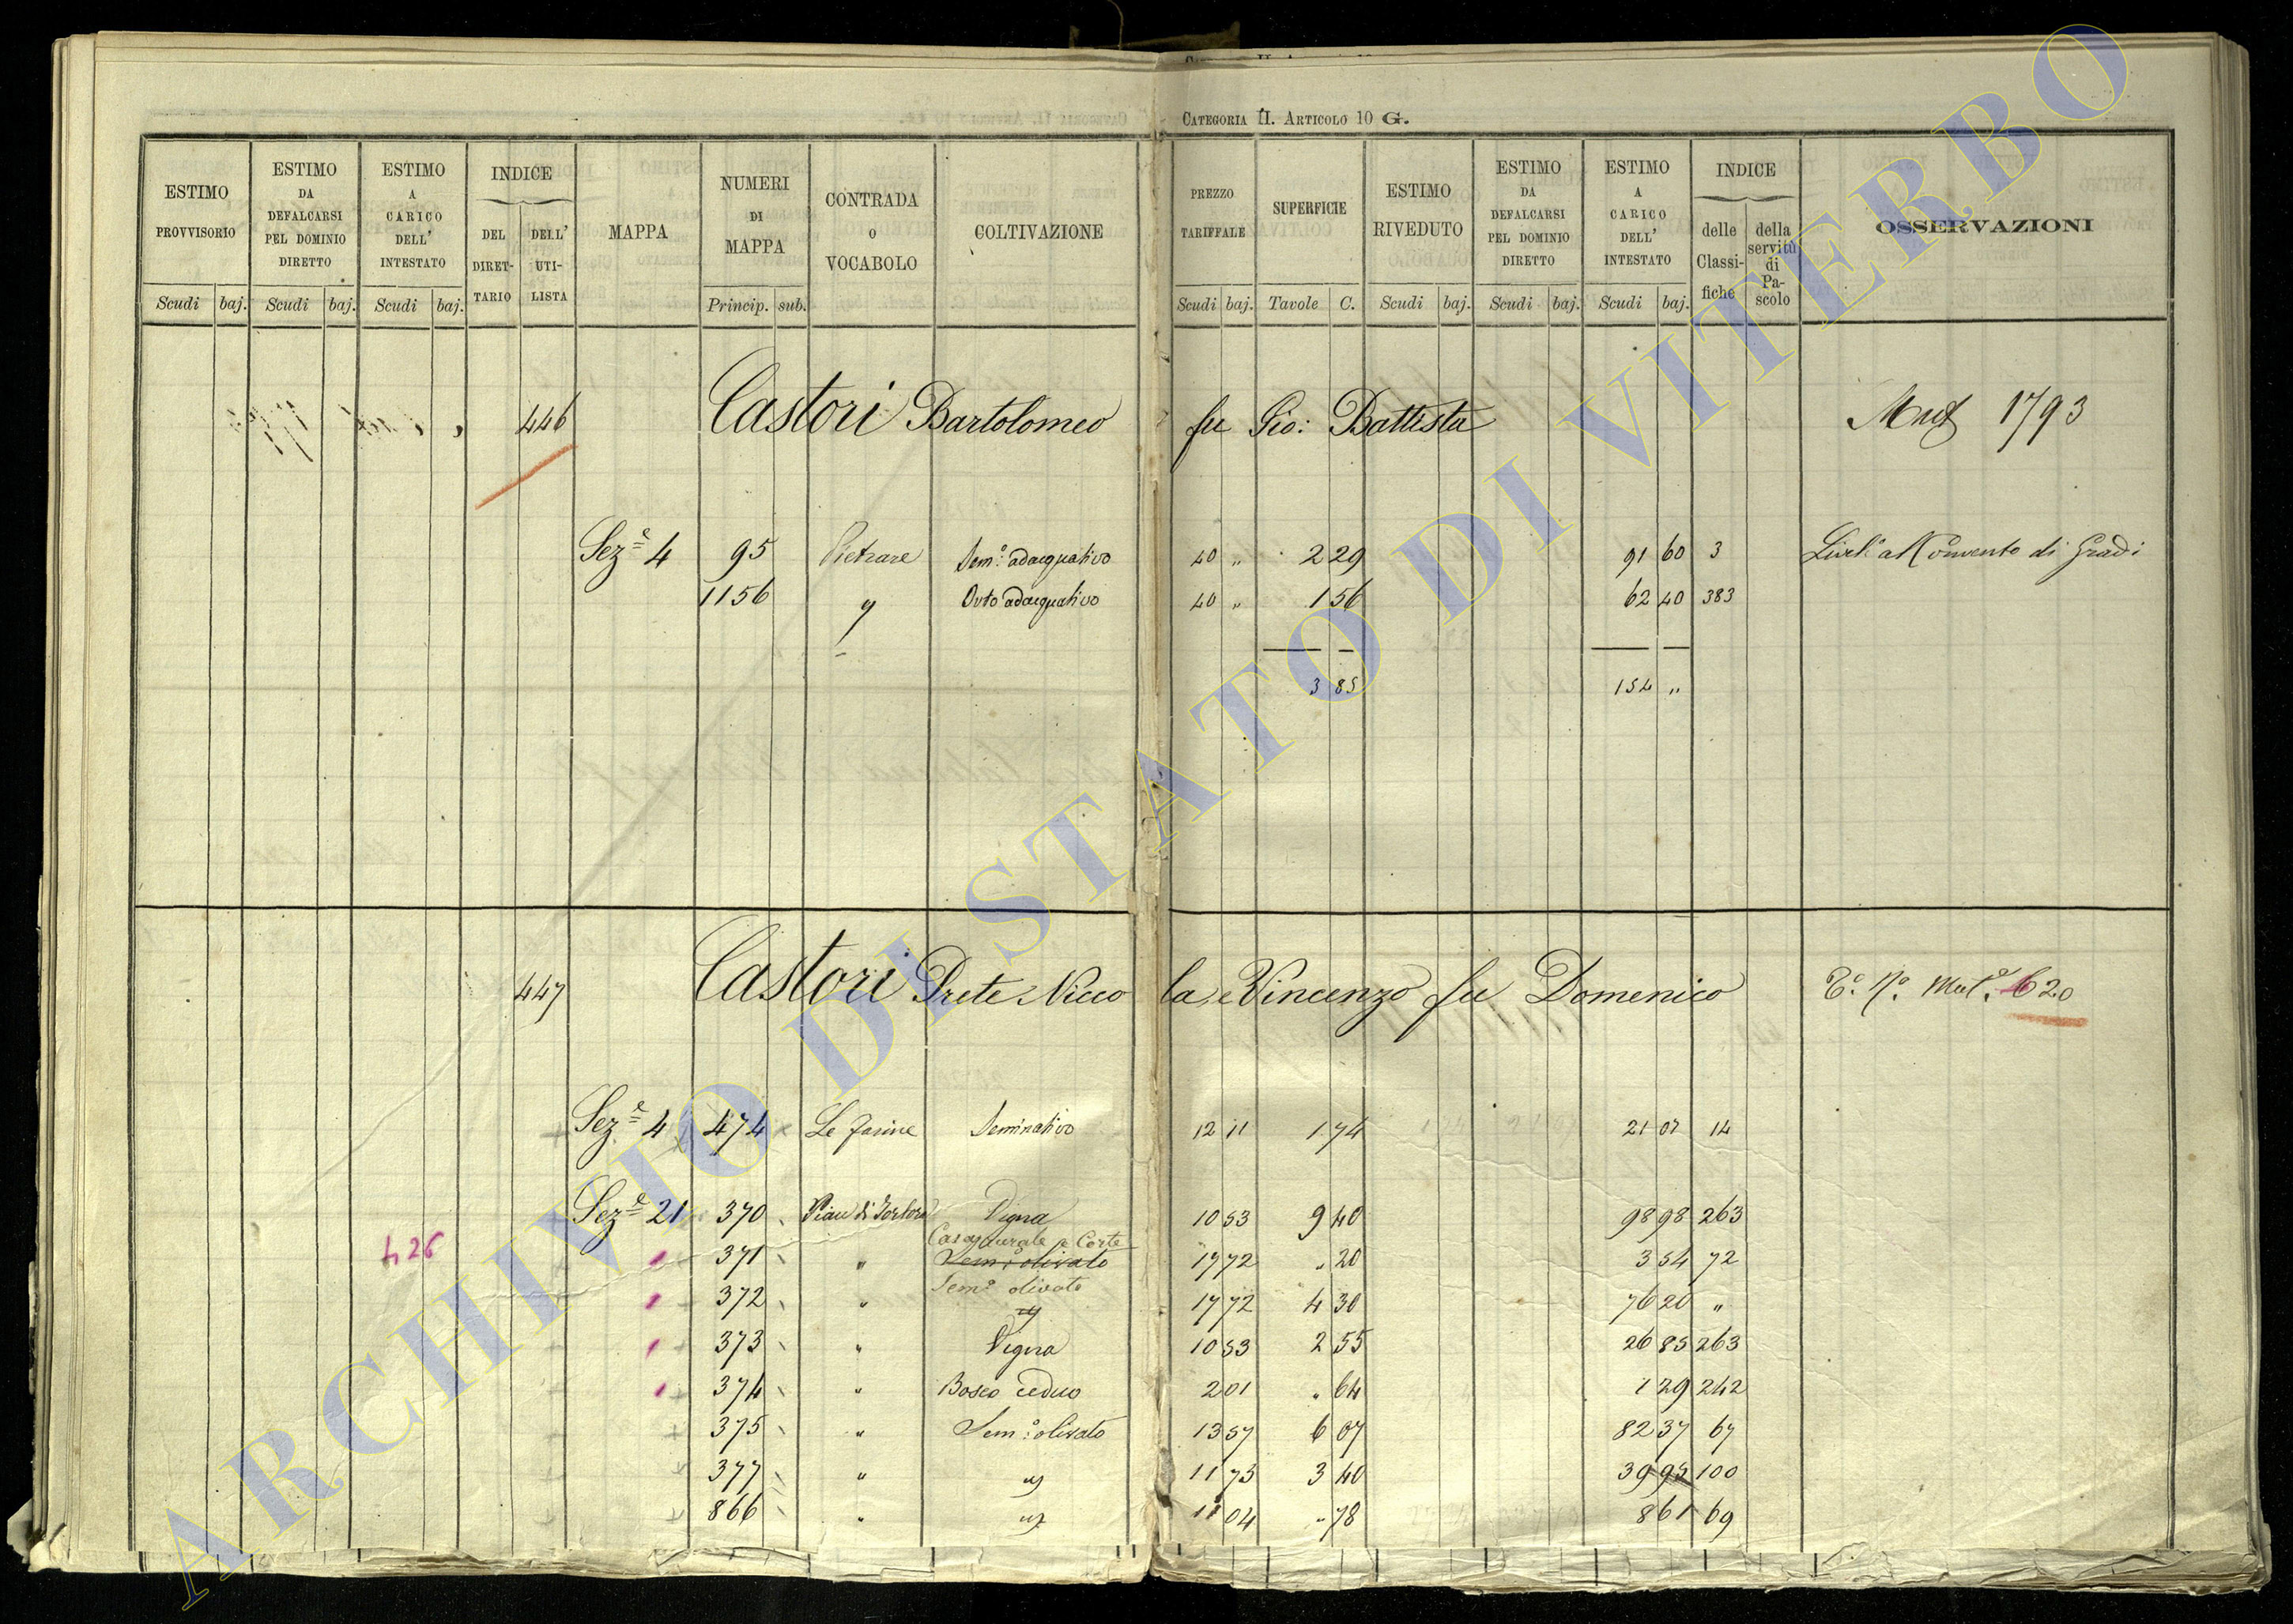 CATEGORIA II. ARTICOLO 10 G.
ESTIMO PROVVISORIO Scudi baj.
ESTIMO DA DEFALCARSI PEL DOMINIO DIRETTO Scudi baj.
ESTIMO A CARICO DELL' INTESTATO Scudi baj.
INDICE DEL DIRET-TARIO DELL' UTI-LISTA
MAPPA
NUMERI DI MAPPA Princip. sub.
CONTRADA O VOCABOLO
COLTIVAZIONE
PREZZO TARIFFALE Scudi baj.
SUPERFICIE Tavole C.
ESTIMO RIVEDUTO Scudi baj.
ESTIMO DA DEFALCARSI PEL DOMINIO DIRETTO Scudi baj.
ESTIMO A CARICO DELL' INTESTATO Scudi baj.
INDICE delle Classi-fiche della servitù di Pa-scolo
OSSERVAZIONI
446 Castori Bartolomeo fu Gio: Battista Mut 1793
Sez.e 4 95 Pietrare Sem.o adacquativo 40 " 2 29 91 60 3 Livell.o al Convento di Gradi
1156 " Orto adacquativo 40 " 1 56 62 40 383
3 85 154 "
447 Castori Prete Niccola, e Vincenzo fu Domenico Mut.e 620
Sez.e 4 474 Le farine Seminativo 12 11 1 74 21 07 14
Sez.e 21 370 Vigna 10 53 9 40 98 98 263
426
Casa rurale e Corte
371 " Sem.o olivato 17 72 " 20 3 54 72
Sem.o olivato
372 " " 17 72 4 30 76 20 "
373 " Vigna 10 53 2 55 26 85 263
374 " Bosco ceduo 2 01 " 64 1 29 242
375 " Sem.o olivato 13 57 6 07 82 37 67
377 " " 11 73 3 40 39 95 100
866 " " 11 04 " 78 8 61 69
ARCHIVIO DI STATO DI VITERBO